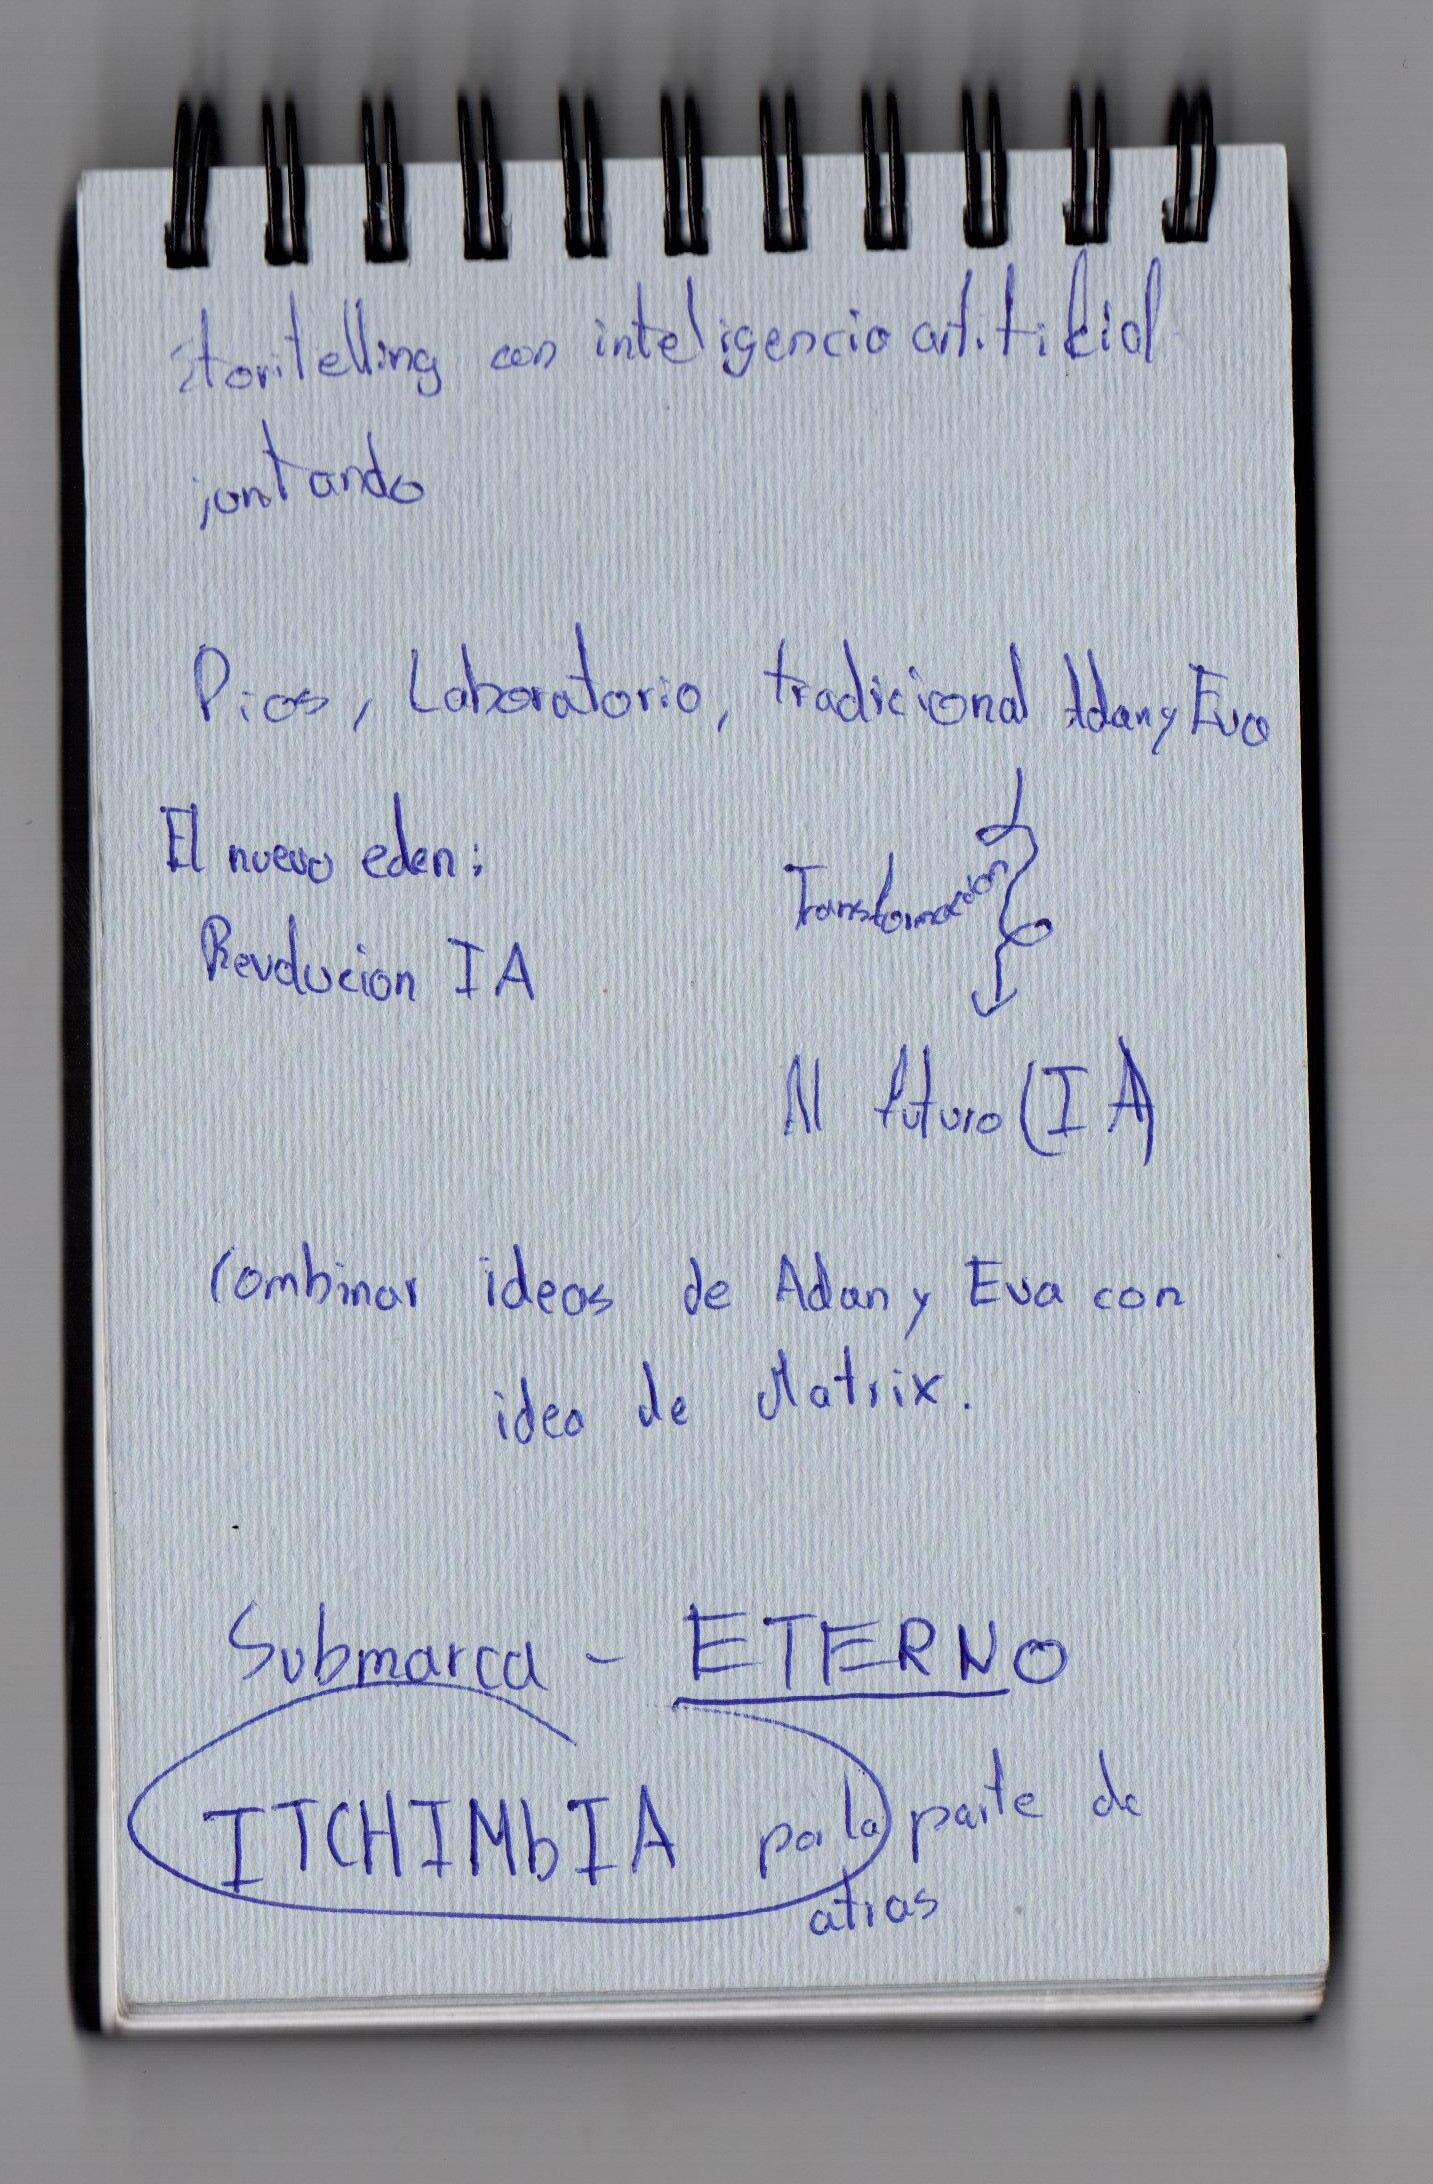 storitelling con inteligencia artificial
juntando
Dios, Laboratorio, tradicional Adan y Eva
El nuevo eden:
Revolucion IA
Transformacion
Al futuro (IA)
Combinar ideas de Adan y Eva con
idea de Matrix.
Submarca - ETERNO
ITCHIMbIA por la parte de
atras